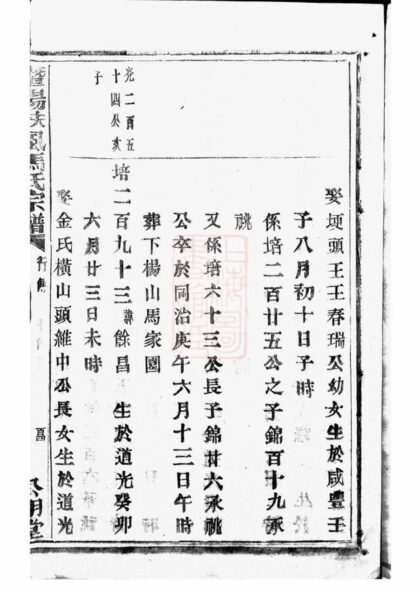 娶埂頭王王春瑞公幼女生於咸豐壬
子八月初十日子時
係培二百廿五公之子錦百十九承
祧
又係培六十三公長子錦廿六承祧
公卒於同治庚午六月十三日午時
葬下楊山馬家園
光二百五
十四公亥
子
培二百九十三諱餘昌生於道光癸卯
六月廿三日未時
娶金氏橫山頭維中公長女生於道光
暨陽扶風馬氏宗譜
行傳